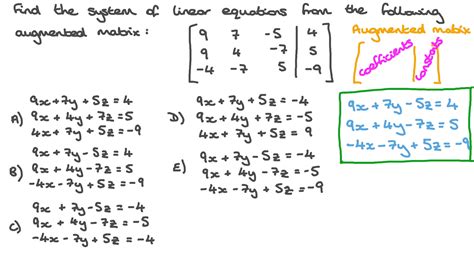 Find the system of linear equations from the following
augmented matrix:
9 7 -5 4
9 4 -7 5
-4 -7 5 -9
Augmented matrix
coefficients
constants
A) 9x+7y+5z=4
9x+4y+7z=5
4x+7y+5z=-9
B) 9x+7y-5z=4
9x+4y-7z=5
-4x-7y+5z=-9
C) 9x+7y-5z=-4
9x+4y-7z=-5
-4x-7y+5z=-4
D) 9x+7y+5z=-4
9x+4y+7z=-5
4x+7y+5z=9
E) 9x+7y-5z=-4
9x+4y-7z=-5
-4x-7y+5z=-9
9x+7y-5z=4
9x+4y-7z=5
-4x-7y+5z=-9